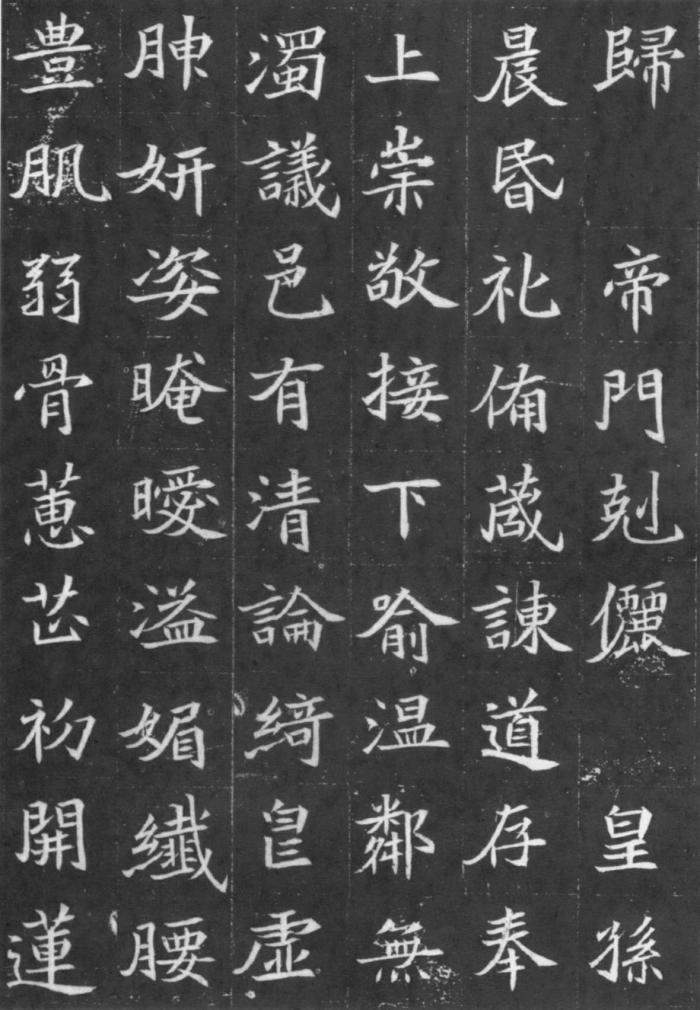 歸　帝門剋儷　皇孫
晨昬礼俻葴諌道存奉
上崇敬接下喻温鄰無
濁議邑有清論綺皀虛
胂妍姿晻曖溢媚纖腰
豊肌弱骨蕙芷初開蓮